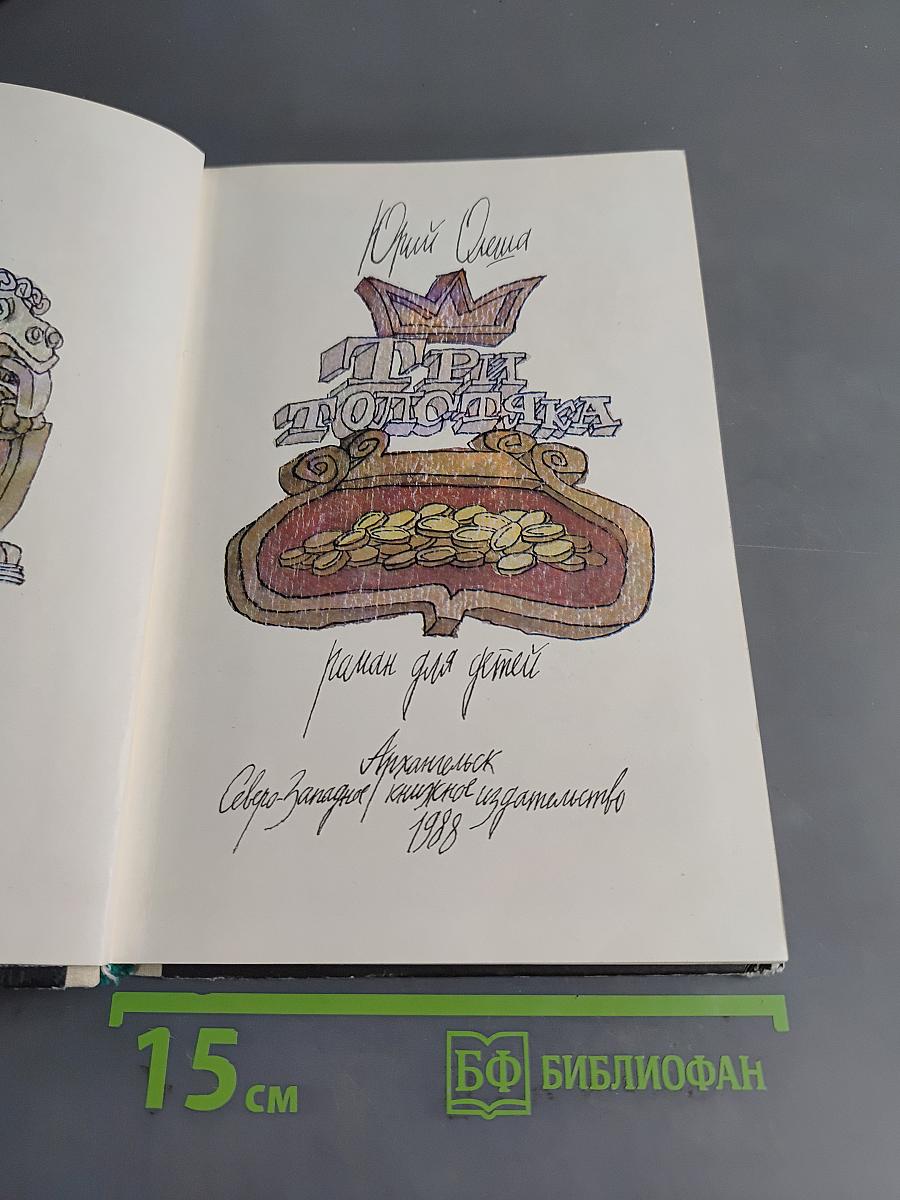 Юрий Олеша
ТРИ
ТОЛСТЯКА
роман для детей
Архангельск
Северо-Западное книжное издательство
1988
15 см
БФ БИБЛИОФАН